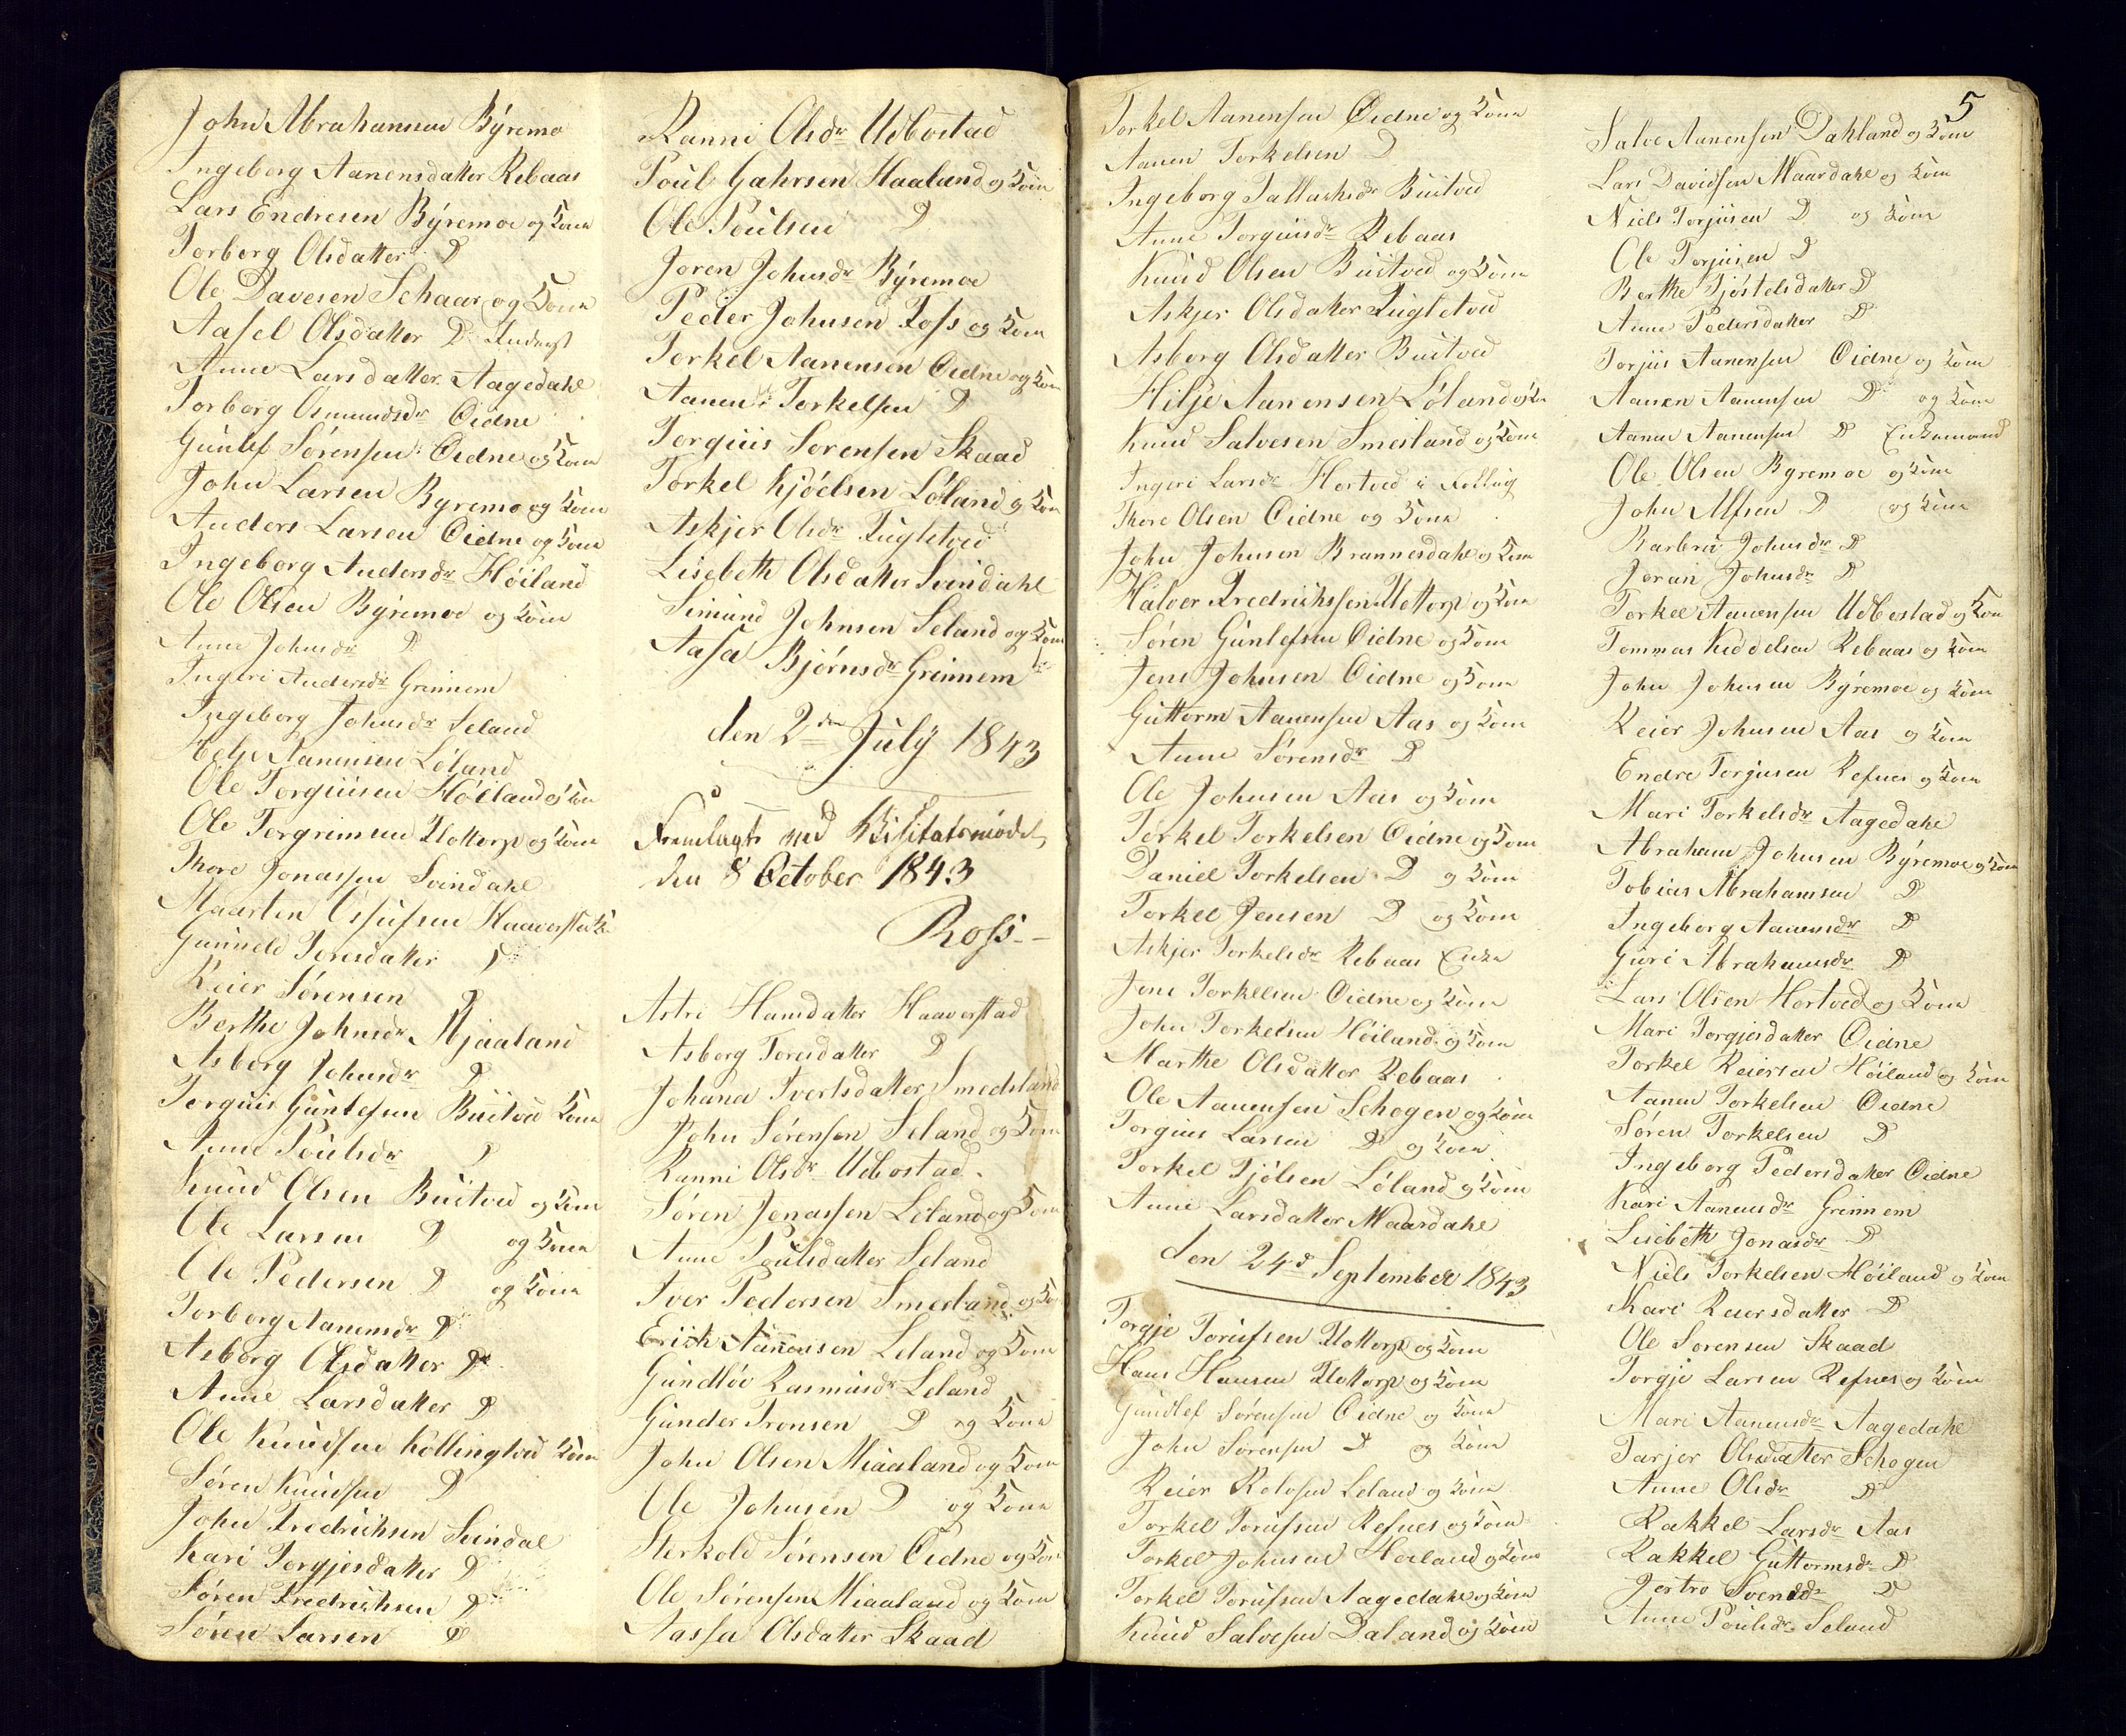 John Abrahamsen Byremo
Ingeborg Aanensdatter Rebaas
Lars Endresen Byremoe og Kone
Torborg Olsdatter D
Ole Davesen Schaar og Kone
Aasel Olsdatter D
Anne Larsdatter Aagedahl
Torborg Osmundsdr Eidne
Gunlef Sørensen Øidne og Kone
John Larsen Byremo og Kone
Anders Larsen Øidne og Kone
Ingeborg Andersdr Høiland
Ole Olsen Byremoe og Kone
Anne Johnsdr D
Ingeri Andersdr Grinnem
Ingeborg Johnsdr Seland
Aanensen Løland
Ole Torguisen Høiland og Kone
Ole Torgrimsen Uottorp og Kone
Thore Jonassen Svindahl
Maarten
Gunneld Toresdatter D
Reier Sørensen D
Berthe Johnsdr Mjaaland
Asborg Johnsdr D
Torguis Gunlefsen Buitved Kone
Anne Poulsdr D
Knud Olsen Buitved og Kone
Ole Larsen D og Kone
Ole Pedersen D og Kone
Torborg Aanensdr D
Asborg Olsdatter D
Anne Larsdatter D
Ole Knudsen Kollingtved Kone
Søren Knudsen D
John Fredrichsen Svindal
Kari Torgjesdatter D
Søren Fredrichsen D
Søren Larsen D
Ranni Olsdr Udbostad
Poul Gahrsen Haaland og Kone
Ole Poulsen D
Joren Johnsdr Byremoe
Peder Johnsen Foss og Kone
Torkel Aanensen Øidne og Kone
Aanen Torkelsen D
Torguis Sorensen Skaad
Torkel Kjøelsen Løland og Kone
Askjer Olsdr Fugletved
Lisebeth Olsdatter Svindahl
Simund Johnsen Seland og Kone
Aasa Bjørnsdr Grinnem
den 2den July 1843
Fremlagt ved Visitatsmødet
den 8 October 1843
Ross
Astri Hansdatter Haaverstad
Asborg Toresdatter D
Johana Ivertsdatter Smedsland
John Sørensen Seland og Kone
Ranni Olsdr Udbostad
Søren Jonassen Leland og Kone
Anne Poulsdatter Seland
Iver Pedersen Smesland og Ko
Erich Aanensen Leland og Kone
Gundløe Rasmusdr Leland
Gunder Tronsen D og Kone
John Olsen Miaaland og Kone
Ole Johnsen D og Kone
Sterkold Sørensen Øidne og Kone
Ole Sørensen Miaaland og Kone
Aassa Olsdatter Skaad
Torkel Aanensen Øidne og Kone
Aanen Torkelsen D
Ingeborg Tallachsdr Buitved
Anne Torguisdr Rebaas
Knud Olsen Buitved og Kone
Askjer Olsdatter Fugletved
Asborg Olsdatter Buitved
Helje Aanensen Løland og Kn
Knud Salvesen Smesland og Kone
Ingeri Larsdr Hortved i Følling
Thore Olsen Øidne og Kone
John Johnsen Brannesdahl og Kone
Halver Fredrichsen Uottorp og Kone
Søren Gunlefsen Øidne og Kone
Jens Johnsen Øidne og Kone
Guttorm Aanensen Aas og Kone
Anne Sørensdr D
Ole Johnsen Aas og Kone
Torkel Torkelsen Øidne og Kone
Daniel Torkelsen D og Kone
Torkel Jensen D og Kone
Askjer Torkelsdr Rebaas Enke
Jens Torkelsen Øidne og Kone
John Torkelsen Høiland og Kone
Marthe Olsdatter Rebaas
Ole Aanensen Schogen og Kone
Torgius Larsen D og Kone
Torkel Tjølsen Løland og Kone
Anne Larsdatter Maardahl
den 24d September 1843
Torgje Torufsen Uottorp og Kone
Hans Hansen Uottorp og Kone
Gundlef Sørensen Øidne og Kone
John Sørensen D og Kone
Reier Rolofsen Leland og Kone
Torkel Torufsen Refnes og Kone
Torkel Johnsen Hoiland og Kone
Torkel Torufsen Aagedahl og Kone
Knud Salvesen Daland og Kone
5
Salve Aanensen Dahland og Kone
Lars Davidsen Maardahl og Kone
Niels Torjusen D og Kone
Ole Torjusen D
Berthe Tjøstelsdatter D
Anne Pedersdatter D
Torjus Aanensen Øidne og Kone
Aanen Aanensen D og Kone
Aanen Aanensen D Enkemand
Ole Olsen Byremoe og Kone
John Alfsen D og Kone
Barbru Johnsdr D
Joran Johnsdr D
Torkel Aanensen Udbostad og Kone
Tommas Keddelsen Rebaas og Kone
John Johnsen Byremoe og Kone
Reier Johnsen Aas og Kone
Endre Torjusen Refnes og Kone
Mari Torkelsdr Aagedahl
Abraham Johnsen Byremoe og Kone
Tobias Abrahamsen D
Ingeborg Aanensdr D
Guri Abrahamsdr D
Lars Olsen Hortved og Kone
Mari Torgjesdatter Øidne
Torkel Reiersen Høiland og Kone
Aanen Torkelsen Øidne
Søren Torkelsen D
Ingeborg Pedersdatter Øidne
Kari Aanensdr Grinnem
Lisebeth Jonasdr D
Niels Torkelsen Høiland og Kone
Kari Reiersdatter D
Ole Sorensen Skaad
Torgje Larsen Refnes og Kone
Mari Aanensdr Aagedahl
Tarjer Olsdatter Schogen
Anne Olsdr D
Rakkel Larsdr Aas
Rakkel Guttormsdr D
Jertro Svensdr D
Anne Poulsdr Seland